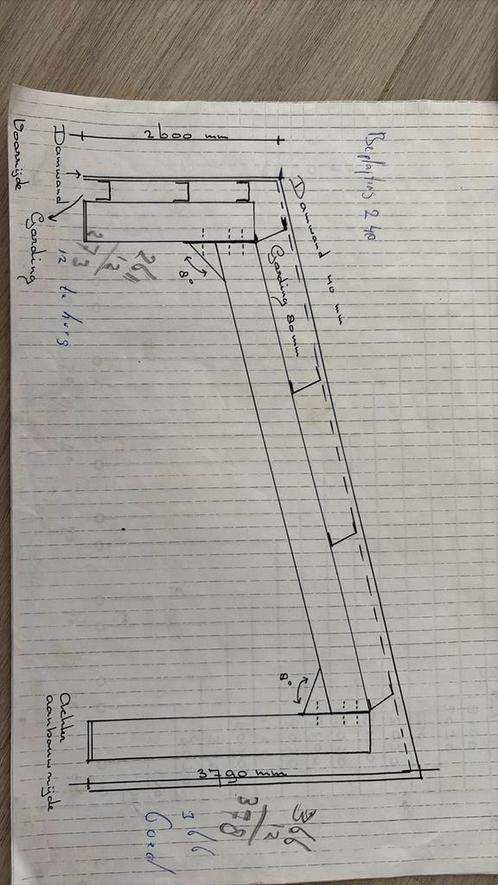 2600 mm
Beplating 240
Voorzijde
Damwand
Gording
Damwand 40 mm
Gording 80 mm
8°
261
12
273
12 te hoog
8°
Achter
aanbouwzijde
3790 mm
366
12
378
366
Goed